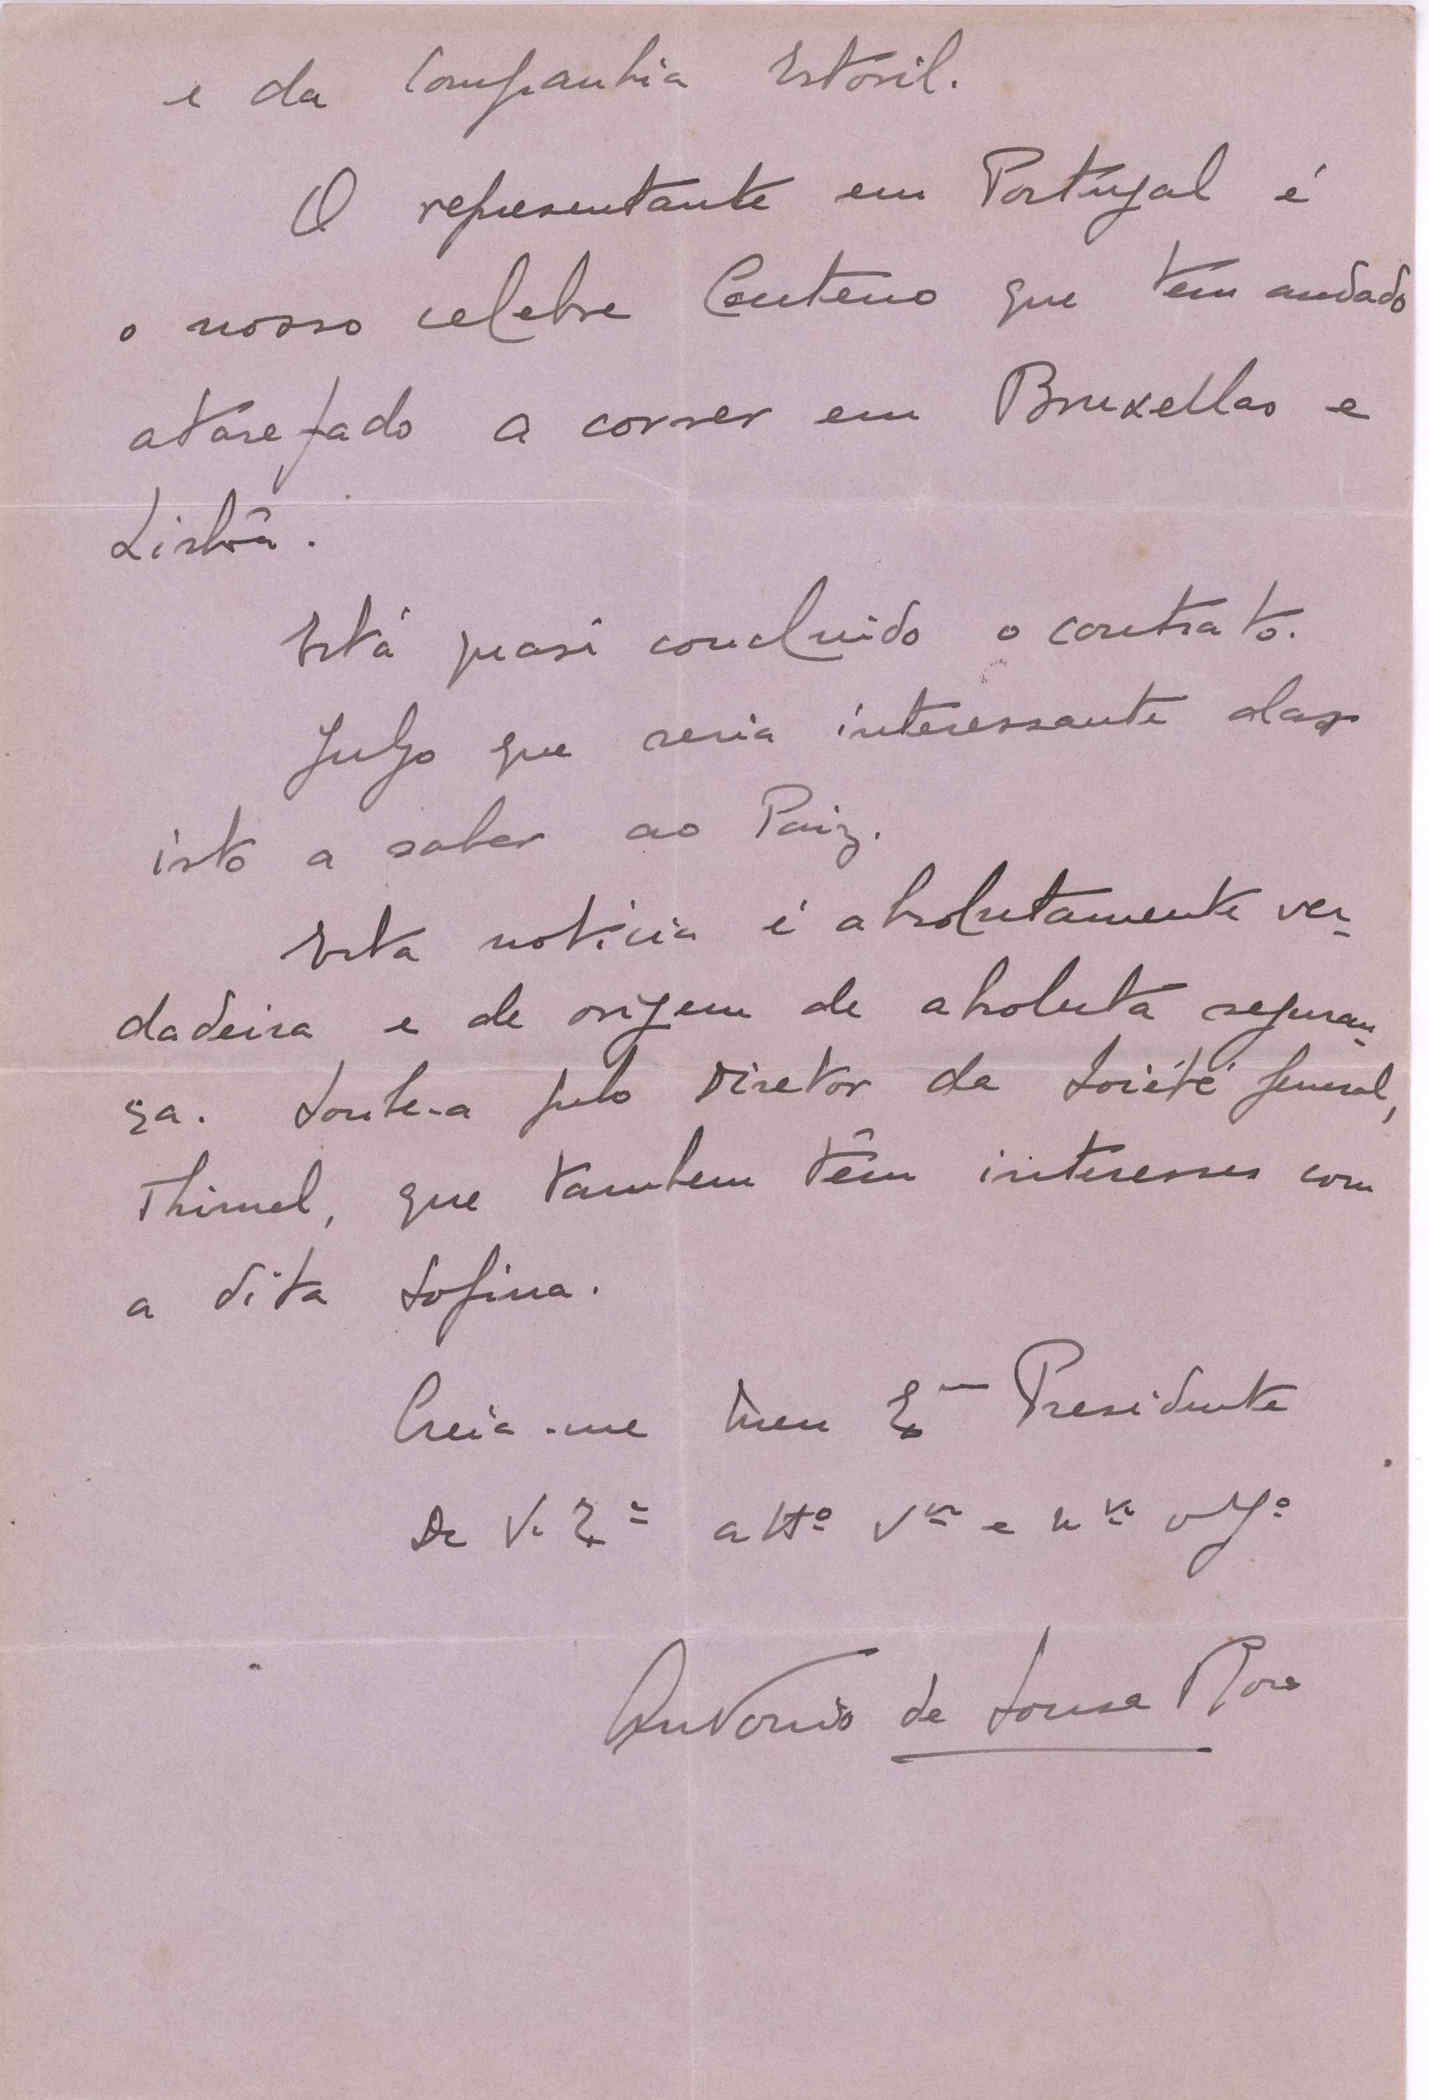 e da Companhia Estoril.
O representante em Portugal é
o nosso celebre Centeno que tem andado
atarefado a correr em Bruxellas e
Lisbôa.
Está quasi concluido o contrato.
Julgo que seria interessante dar
isto a saber ao Paiz.
Esta noticia é absolutamente ver-
dadeira e de origem de absoluta seguran-
ça. Soube-a pelo Diretor da Société General,
Thirmel, que tambem têm interesses com
a dita Sofina.
Creia-me meu Exmo Presidente
De V. Exª attº vor e nor obgº
Antonio de Sousa